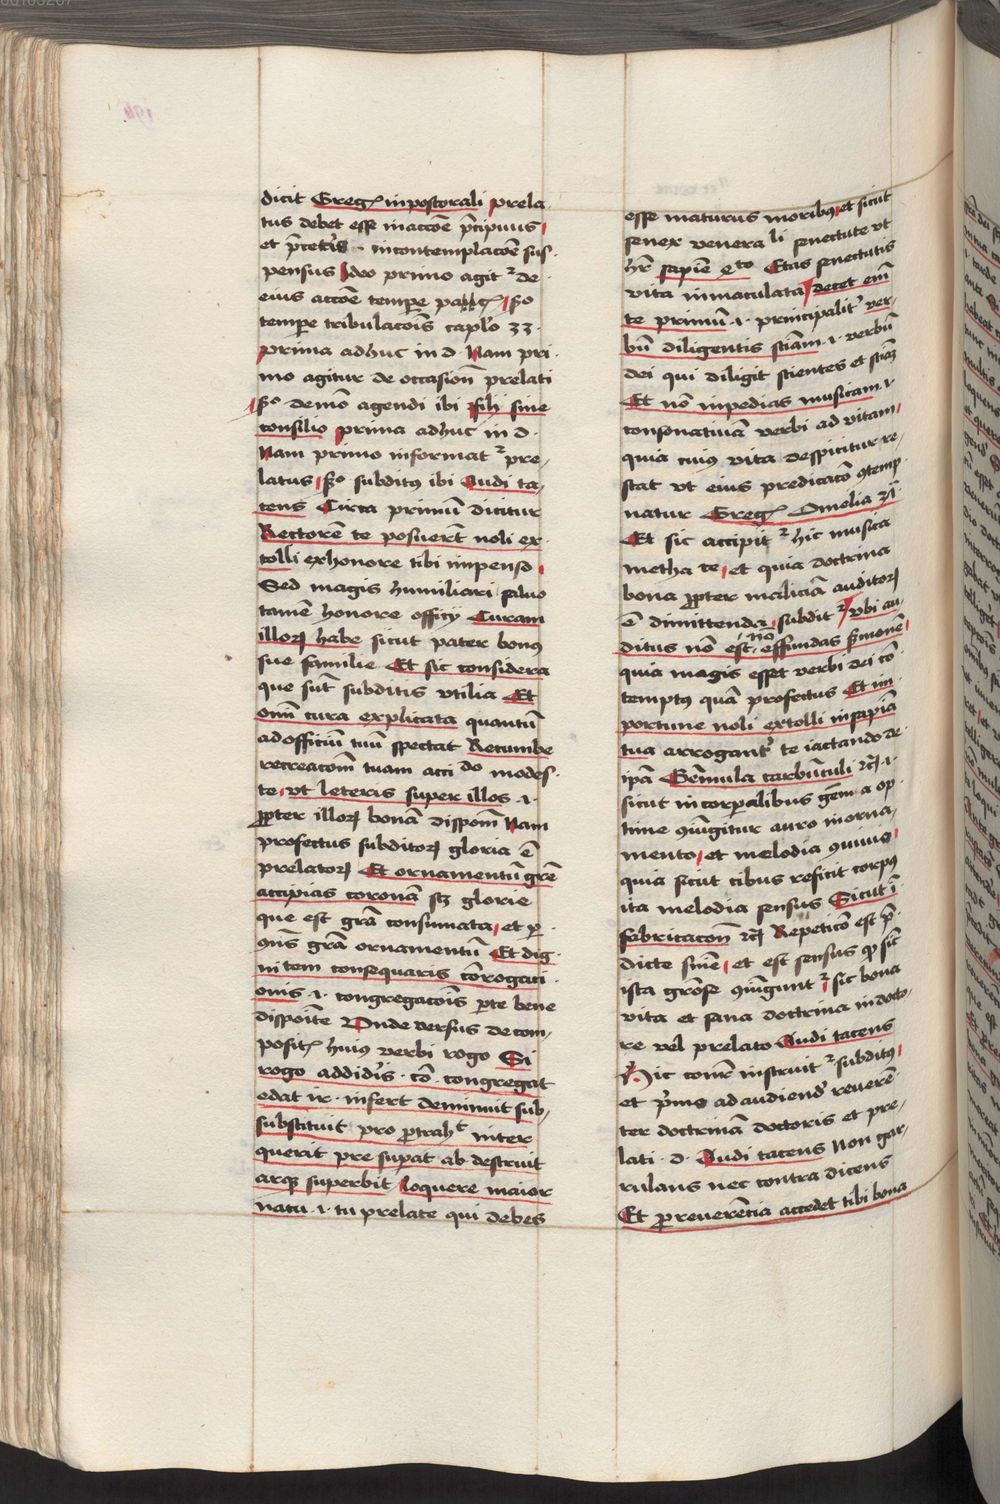 dicit Greg᷒ in pastorali prela
tus debet esse in acc̄oe p̄cipuus
et p̄ cet̄is · in contemplac̄oe sus
pensus Ideo primo agit᷑ de
eius acc̄oe tempe pac̄ / s̄o
tempe tribulac̄ois cap̄lo 33·
prima adhuc in d· Nam pri
mo agitur de occasion̄ prelati
s̄o de mō agendi ibi filij sine
consilio prima adhuc in d·
Nam primo informat᷑ pre
latus / s̄o subditꝰ ibi Audi ta
cens Circa primū dicitur
Rectorē te posuer̄t noli ex
tolli ex honore tibi impenso
Sed magis humiliari saluo
tamē honore officij Curam
illoꝝ habe sicut pater bonꝰ
sue familie Et sic considera
que sūt subditis vtilia Et
om̄i cura explicata quantū
ad officiū tuū spectat Recumbe
recreac̄om tuam acci do modes
te / vt leteris super illos ·i·
ꝓpter illoꝝ bonā disposi̅o̅m Nam
profectus subditoꝝ gloria ē
prelatoꝝ Et ornamentū gr̄e
accipias coronā sꝫ glorie
que est gr̄a consumata / et ꝑ
ꝯn̄s gr̄a ornamentū Et dig
ni tem consequaris c̄orogaci
onis ·i· congregac̄ois ꝑte bene
disposi̅te Vnde versus de com
posit᷒ huiꝰ verbi rogo Si
rogo addid̄is · co · congregat
e dat ir · in fert de minuit sub
substituit pro ꝓtrahᵗ inter
querit pre supat ab destruit
arqꝫ superbit Loquere maior
natu ·i· tu prelate qui debes
esse maturus moribꝰ / et sicut
senex venera li senectute vt
hr̄ sapie̅ 4to Etas senectutis
vita inmaculata / decet em̄
te primū ·i· principalit᷑ ver
bū diligentis sciam̄ ·i· verbū
dei qui diligit scientes et sciāꝫ
Et nō impedias musicam ·i·
consonātiuā verbi ad vitam
quia cuiꝰ vita despicitur re
stat vt eius predicac̄o ꝯtemp
natur Greg᷒ Omelia xiͥ
Et sic accipit᷑ hic musica
metha ce / et quia doctrina
bona ꝓpter maliciā auditoꝝ
ē dimittenda / subdit᷑ / vbi au
ditus nō est / nō effundas s̄monē
quia magis esset verbi dei cō
temptꝰ quā profectus Et im
portune noli extolli in sapīa
tua arrogant᷑ te iactando de
ipā Gēmula carbūculi ꝛc̄ ·i·
sicut in corpalibus gēm a op
time ꝯiūgitur auro in orna
mento / et melodia ꝯuiuio
quia sicut cibus reficit corpꝰ
ita melodia sensus Sicut ī
fabricac̄on ꝛc̄ Repeticō est p̄
dicte sn̄ie / et est sensus qꝫ sic̄
ista grose ꝯiūgunt᷑ / sic bona
vita et sana doctrina in docto
re vel prelato Audi tacens
Hic cōn̄r instruit᷑ subditꝰ
et p̄mo ad audiend᷒ reueren
ter doctrinā doctoris et pre
lati · d· Audi tacens Non gar
rulans nec contra dicens
Et ꝓ reuerēcia accedet tibi bona